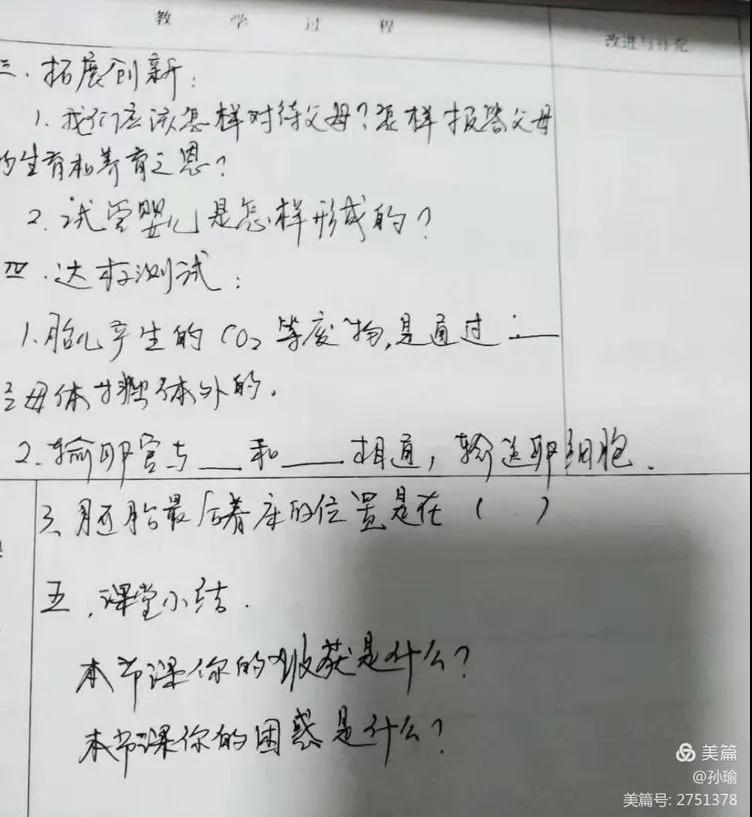 教 学 过 程
改进与补充
三、拓展创新：
1. 我们应该怎样对待父母？怎样报答父母
的生育和养育之恩？
2. 试管婴儿是怎样形成的？
四、达标测试：
1. 胎儿产生的CO₂等废物，是通过：__
母体排出体外的。
2. 输卵管与__和__相通，输送卵细胞．
3. 胚胎最后着床的位置是在（ ）
五、课堂小结．
本节课你的收获是什么？
本节课你的困惑是什么？
美篇
@孙瑜
美篇号: 2751378